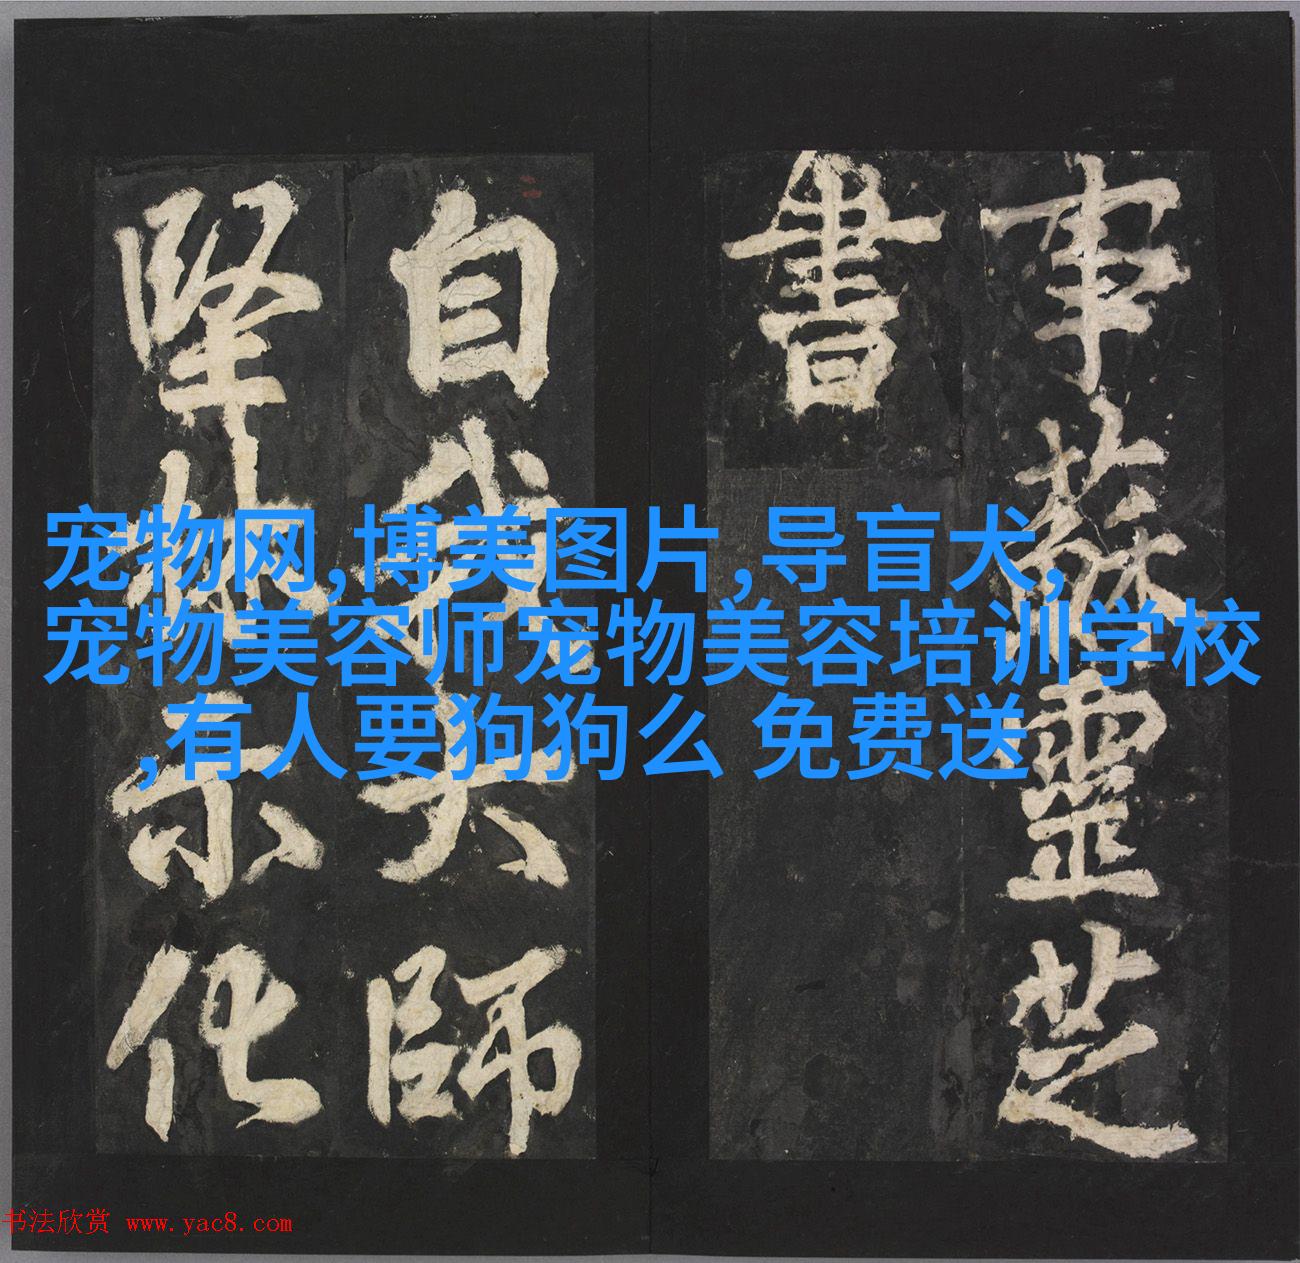 事蘇靈芝
書
自我大師
堅林示化
宠物网,博美图片,导盲犬,
宠物美容师宠物美容培训学校
,有人要狗狗么 免费送
书法欣赏 www.yac8.com